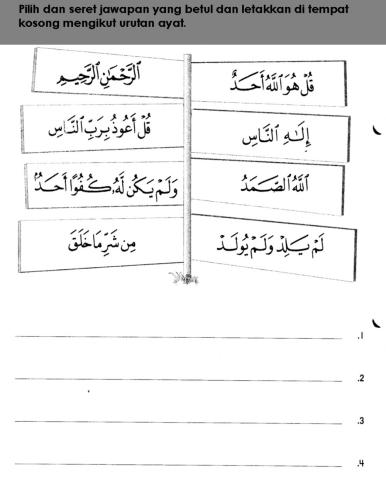 Pilih dan seret jawapan yang betul dan letakkan di tempat
kosong mengikut urutan ayat.
قُلْ هُوَ ٱللَّهُ أَحَدٌ
ٱلرَّحْمَٰنِ ٱلرَّحِيمِ
إِلَٰهِ ٱلنَّاسِ
قُلْ أَعُوذُ بِرَبِّ ٱلنَّاسِ
ٱللَّهُ ٱلصَّمَدُ
وَلَمْ يَكُن لَّهُۥ كُفُوًا أَحَدٌۢ
لَمْ يَلِدْ وَلَمْ يُولَدْ
مِن شَرِّ مَا خَلَقَ
.1
.2
.3
.4